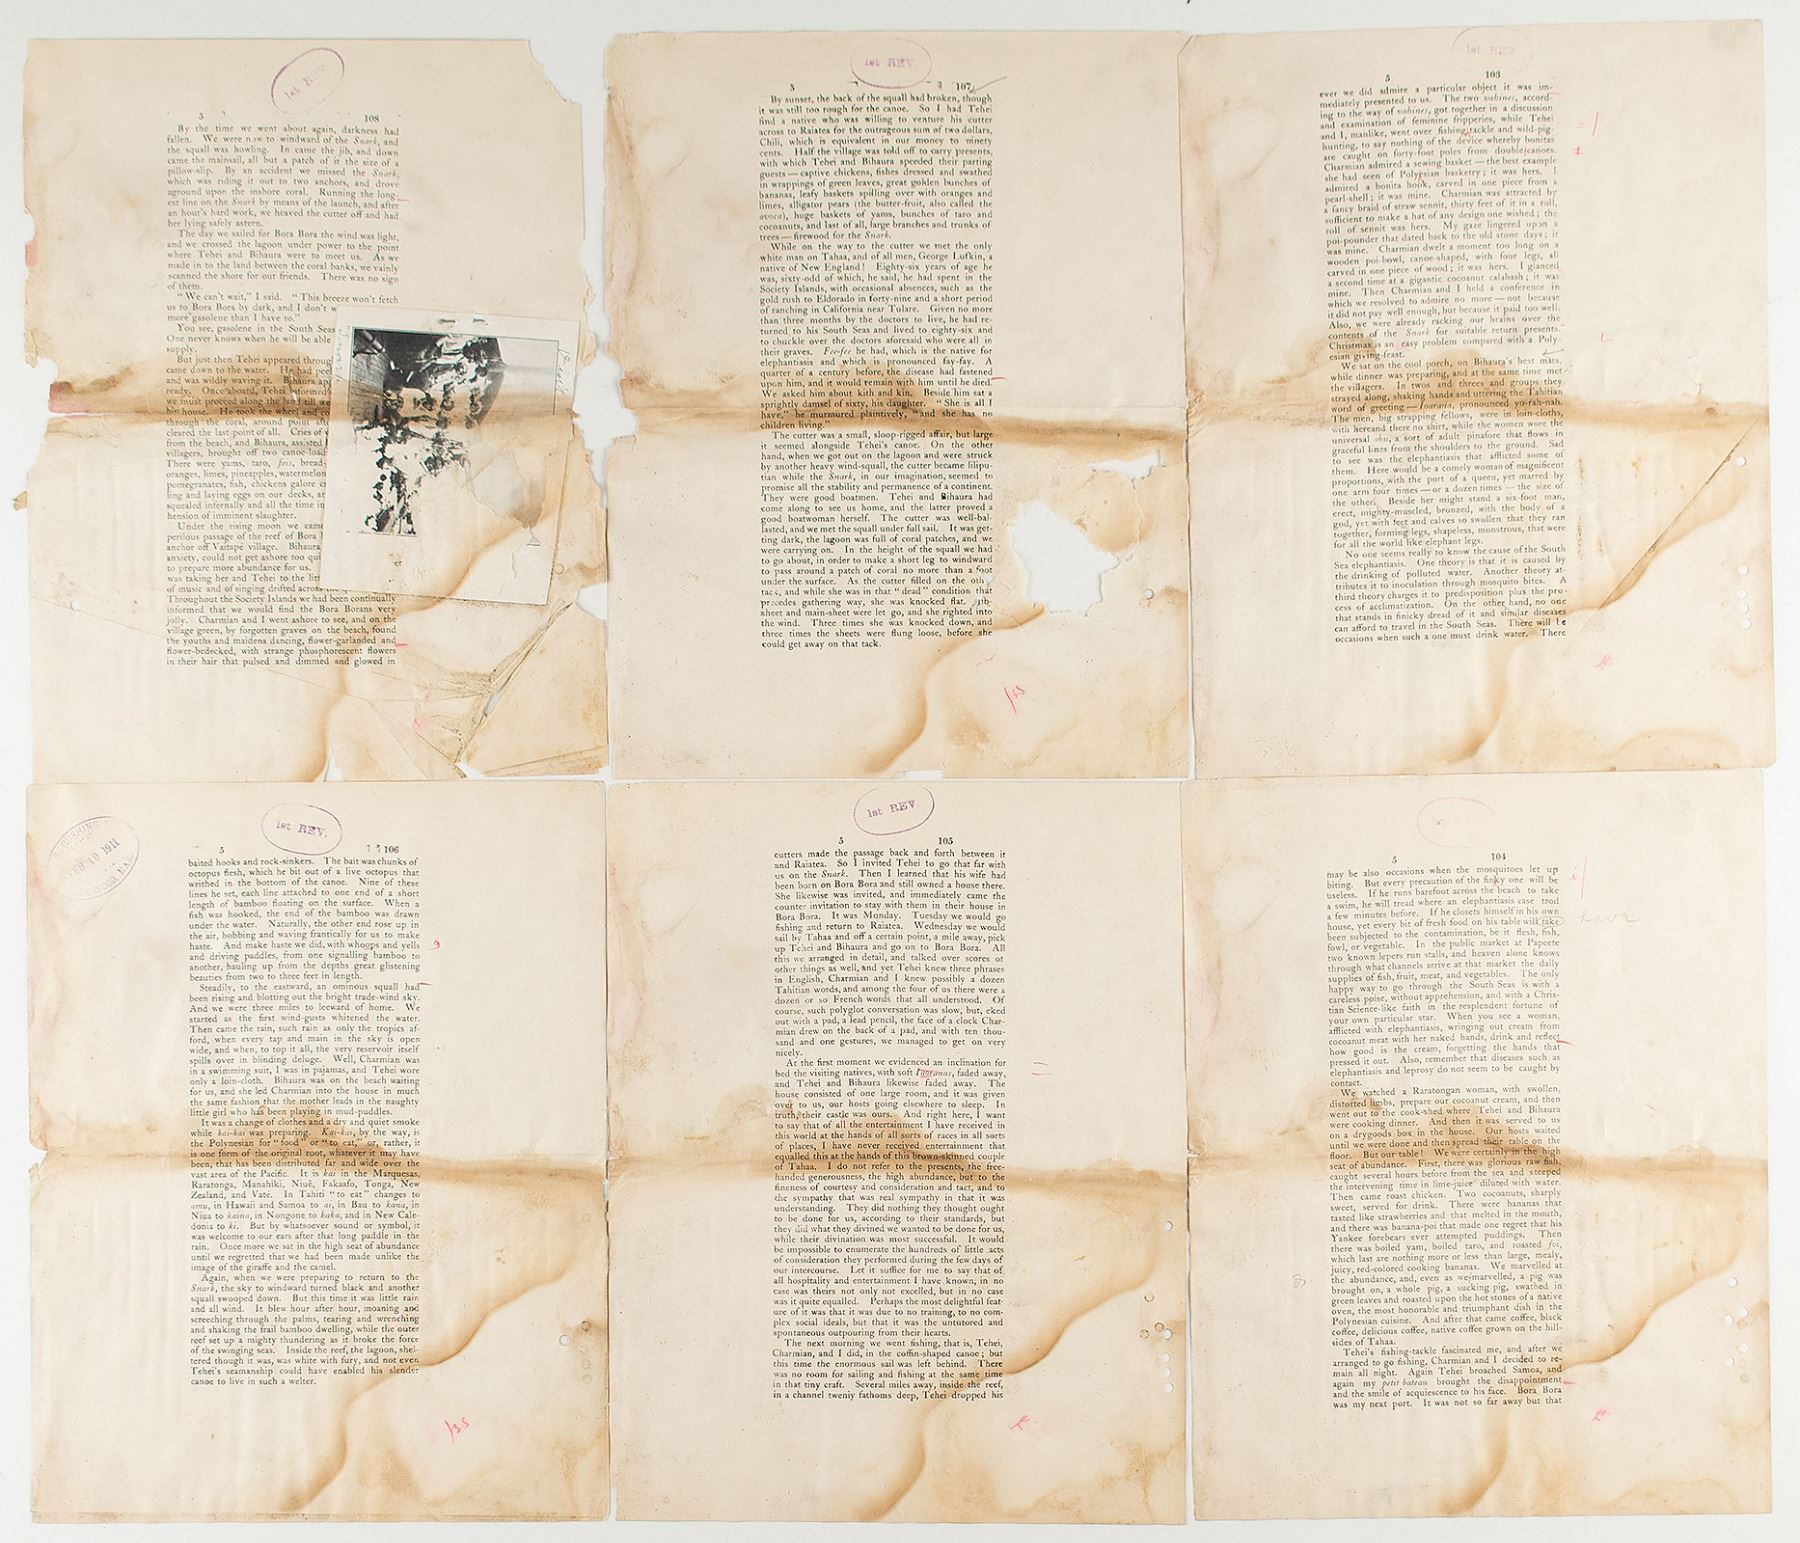 1st REV.
5 108
By the time we went about again, darkness had
fallen. We were now to windward of the Snark, and
the squall was howling. In came the jib, and down
came the mainsail, all but a patch of it the size of a
pillow-slip. By an accident we missed the Snark,
which was riding it out to two anchors, and drove
aground upon the inshore coral. Running the long-
est line on the Snark by means of the launch, and after
an hour's hard work, we heaved the cutter off and had
her lying safely astern.
The day we sailed for Bora Bora the wind was light,
and we crossed the lagoon under power to the point
where Tehei and Bihaura were to meet us. As we
made in to the land between the coral banks, we vainly
scanned the shore for our friends. There was no sign
of them.
"We can't wait," I said. "This breeze won't fetch
us to Bora Bora by dark, and I don't w
more gasolene than I have to."
You see, gasolene in the South Seas
One never knows when he will be able
supply.
But just then Tehei appeared throug
came down to the water. He had pee
and was wildly waving it. Bihaura ap
ready. Once aboard, Tehei informed
we must proceed along the land till we
his house. He took the wheel and co
through the coral, around point afte
cleared the last point of all. Cries of
from the beach, and Bihaura, assisted
villagers, brought off two canoe-load
There were yams, taro, feis, bread-
oranges, limes, pineapples, watermelon
pomegranates, fish, chickens galore c
ling and laying eggs on our decks, an
squealed infernally and all the time in
hension of imminent slaughter.
Under the rising moon we came
perilous passage of the reef of Bora
anchor off Vaitapé village. Bihaura,
anxiety, could not get ashore too qui
to prepare more abundance for us.
was taking her and Tehei to the litt
of music and of singing drifted across
Throughout the Society Islands we had been continually
informed that we would find the Bora Borans very
jolly. Charmian and I went ashore to see, and on the
village green, by forgotten graves on the beach, found
the youths and maidens dancing, flower-garlanded and
flower-bedecked, with strange phosphorescent flowers
in their hair that pulsed and dimmed and glowed in
1st REV.
5 107
By sunset, the back of the squall had broken, though
it was still too rough for the canoe. So I had Tehei
find a native who was willing to venture his cutter
across to Raiatea for the outrageous sum of two dollars,
Chili, which is equivalent in our money to ninety
cents. Half the village was told off to carry presents,
with which Tehei and Bihaura speeded their parting
guests — captive chickens, fishes dressed and swathed
in wrappings of green leaves, great golden bunches of
bananas, leafy baskets spilling over with oranges and
limes, alligator pears (the butter-fruit, also called the
avoca), huge baskets of yams, bunches of taro and
cocoanuts, and last of all, large branches and trunks of
trees — firewood for the Snark.
While on the way to the cutter we met the only
white man on Tahaa, and of all men, George Lufkin, a
native of New England! Eighty-six years of age he
was, sixty-odd of which, he said, he had spent in the
Society Islands, with occasional absences, such as the
gold rush to Eldorado in forty-nine and a short period
of ranching in California near Tulare. Given no more
than three months by the doctors to live, he had re-
turned to his South Seas and lived to eighty-six and
to chuckle over the doctors aforesaid who were all in
their graves. Fee-fee he had, which is the native for
elephantiasis and which is pronounced fay-fay. A
quarter of a century before, the disease had fastened
upon him, and it would remain with him until he died.
We asked him about kith and kin. Beside him sat a
sprightly damsel of sixty, his daughter. "She is all I
have," he murmured plaintively, "and she has no
children living."
The cutter was a small, sloop-rigged affair, but large
it seemed alongside Tehei's canoe. On the other
hand, when we got out on the lagoon and were struck
by another heavy wind-squall, the cutter became lilipu-
tian while the Snark, in our imagination, seemed to
promise all the stability and permanence of a continent.
They were good boatmen. Tehei and Bihaura had
come along to see us home, and the latter proved a
good boatwoman herself. The cutter was well-bal-
lasted, and we met the squall under full sail. It was get-
ting dark, the lagoon was full of coral patches, and we
were carrying on. In the height of the squall we had
to go about, in order to make a short leg to windward
to pass around a patch of coral no more than a foot
under the surface. As the cutter filled on the oth
tack, and while she was in that "dead" condition that
precedes gathering way, she was knocked flat. Jib-
sheet and main-sheet were let go, and she righted into
the wind. Three times she was knocked down, and
three times the sheets were flung loose, before she
could get away on that tack.
1st REV.
5 103
ever we did admire a particular object it was im-
mediately presented to us. The two vahines, accord-
ing to the way of vahines, got together in a discussion
and examination of feminine fripperies, while Tehei
and I, manlike, went over fishing tackle and wild-pig-
hunting, to say nothing of the device whereby bonitas
are caught on forty-foot poles from double canoes.
Charmian admired a sewing basket — the best example
she had seen of Polynesian basketry; it was hers. I
admired a bonita hook, carved in one piece from a
pearl-shell; it was mine. Charmian was attracted by
a fancy braid of straw sennit, thirty feet of it in a roll,
sufficient to make a hat of any design one wished; the
roll of sennit was hers. My gaze lingered upon a
poi-pounder that dated back to the old stone days; it
was mine. Charmian dwelt a moment too long on a
wooden poi-bowl, canoe-shaped, with four legs, all
carved in one piece of wood; it was hers. I glanced
a second time at a gigantic cocoanut calabash; it was
mine. Then Charmian and I held a conference in
which we resolved to admire no more — not because
it did not pay well enough, but because it paid too well.
Also, we were already racking our brains over the
contents of the Snark for suitable return presents.
Christmas is an easy problem compared with a Poly-
esian giving-feast.
We sat on the cool porch, on Bihaura's best mats,
while dinner was preparing, and at the same time met
the villagers. In twos and threes and groups they
strayed along, shaking hands and uttering the Tahitian
word of greeting — Ioarana, pronounced yo-rah-nah.
The men, big strapping fellows, were in loin-cloths,
with here and there no shirt, while the women wore the
universal ahu, a sort of adult pinafore that flows in
graceful lines from the shoulders to the ground. Sad
to see was the elephantiasis that afflicted some of
them. Here would be a comely woman of magnificent
proportions, with the port of a queen, yet marred by
one arm four times — or a dozen times — the size of
the other. Beside her might stand a six-foot man,
erect, mighty-muscled, bronzed, with the body of a
god, yet with feet and calves so swollen that they ran
together, forming legs, shapeless, monstrous, that were
for all the world like elephant legs.
No one seems really to know the cause of the South
Sea elephantiasis. One theory is that it is caused by
the drinking of polluted water. Another theory at-
tributes it to inoculation through mosquito bites. A
third theory charges it to predisposition plus the pro-
cess of acclimatization. On the other hand, no one
that stands in finicky dread of it and similar diseases
can afford to travel in the South Seas. There will be
occasions when such a one must drink water. There
CUSHING
FEB 10 1911
1st REV.
5 106
baited hooks and rock-sinkers. The bait was chunks of
octopus flesh, which he bit out of a live octopus that
writhed in the bottom of the canoe. Nine of these
lines he set, each line attached to one end of a short
length of bamboo floating on the surface. When a
fish was hooked, the end of the bamboo was drawn
under the water. Naturally, the other end rose up in
the air, bobbing and waving frantically for us to make
haste. And make haste we did, with whoops and yells
and driving paddles, from one signalling bamboo to
another, hauling up from the depths great glistening
beauties from two to three feet in length.
Steadily, to the eastward, an ominous squall had
been rising and blotting out the bright trade-wind sky.
And we were three miles to leeward of home. We
started as the first wind-gusts whitened the water.
Then came the rain, such rain as only the tropics af-
ford, when every tap and main in the sky is open
wide, and when, to top it all, the very reservoir itself
spills over in blinding deluge. Well, Charmian was
in a swimming suit, I was in pajamas, and Tehei wore
only a loin-cloth. Bihaura was on the beach waiting
for us, and she led Charmian into the house in much
the same fashion that the mother leads in the naughty
little girl who has been playing in mud-puddles.
It was a change of clothes and a dry and quiet smoke
while kai-kai was preparing. Kai-kai, by the way, is
the Polynesian for "food" or "to eat," or, rather, it
is one form of the original root, whatever it may have
been, that has been distributed far and wide over the
vast area of the Pacific. It is kai in the Marquesas,
Raratonga, Manahiki, Niuē, Fakaafo, Tonga, New
Zealand, and Vaté. In Tahiti "to eat" changes to
amu, in Hawaii and Samoa to ai, in Bau to kana, in
Niua to kaina, in Nongone to kaka, and in New Cale-
donia to ki. But by whatsoever sound or symbol, it
was welcome to our ears after that long paddle in the
rain. Once more we sat in the high seat of abundance
until we regretted that we had been made unlike the
image of the giraffe and the camel.
Again, when we were preparing to return to the
Snark, the sky to windward turned black and another
squall swooped down. But this time it was little rain
and all wind. It blew hour after hour, moaning and
screeching through the palms, tearing and wrenching
and shaking the frail bamboo dwelling, while the outer
reef set up a mighty thundering as it broke the force
of the swinging seas. Inside the reef, the lagoon, shel-
tered though it was, was white with fury, and not even
Tehei's seamanship could have enabled his slender
canoe to live in such a welter.
1st REV.
5 105
cutters made the passage back and forth between it
and Raiatea. So I invited Tehei to go that far with
us on the Snark. Then I learned that his wife had
been born on Bora Bora and still owned a house there.
She likewise was invited, and immediately came the
counter invitation to stay with them in their house in
Bora Bora. It was Monday. Tuesday we would go
fishing and return to Raiatea. Wednesday we would
sail by Tahaa and off a certain point, a mile away, pick
up Tehei and Bihaura and go on to Bora Bora. All
this we arranged in detail, and talked over scores of
other things as well, and yet Tehei knew three phrases
in English, Charmian and I knew possibly a dozen
Tahitian words, and among the four of us there were a
dozen or so French words that all understood. Of
course, such polyglot conversation was slow, but, eked
out with a pad, a lead pencil, the face of a clock Char-
mian drew on the back of a pad, and with ten thou-
sand and one gestures, we managed to get on very
nicely.
At the first moment we evidenced an inclination for
bed the visiting natives, with soft Iaoranas, faded away,
and Tehei and Bihaura likewise faded away. The
house consisted of one large room, and it was given
over to us, our hosts going elsewhere to sleep. In
truth, their castle was ours. And right here, I want
to say that of all the entertainment I have received in
this world at the hands of all sorts of races in all sorts
of places, I have never received entertainment that
equalled this at the hands of this brown-skinned couple
of Tahaa. I do not refer to the presents, the free-
handed generousness, the high abundance, but to the
fineness of courtesy and consideration and tact, and to
the sympathy that was real sympathy in that it was
understanding. They did nothing they thought ought
to be done for us, according to their standards, but
they did what they divined we wanted to be done for us,
while their divination was most successful. It would
be impossible to enumerate the hundreds of little acts
of consideration they performed during the few days of
our intercourse. Let it suffice for me to say that of
all hospitality and entertainment I have known, in no
case was theirs not only not excelled, but in no case
was it quite equalled. Perhaps the most delightful feat-
ure of it was that it was due to no training, to no com-
plex social ideals, but that it was the untutored and
spontaneous outpouring from their hearts.
The next morning we went fishing, that is, Tehei,
Charmian, and I did, in the coffin-shaped canoe; but
this time the enormous sail was left behind. There
was no room for sailing and fishing at the same time
in that tiny craft. Several miles away, inside the reef,
in a channel twenty fathoms deep, Tehei dropped his
5 104
may be also occasions when the mosquitoes let up
biting. But every precaution of the finky one will be
useless. If he runs barefoot across the beach to take
a swim, he will tread where an elephantiasis case trod
a few minutes before. If he closets himself in his own
house, yet every bit of fresh food on his table will take have
been subjected to the contamination, be it flesh, fish,
fowl, or vegetable. In the public market at Papeete
two known lepers run stalls, and heaven alone knows
through what channels arrive at that market the daily
supplies of fish, fruit, meat, and vegetables. The only
happy way to go through the South Seas is with a
careless poise, without apprehension, and with a Chris-
tian Science-like faith in the resplendent fortune of
your own particular star. When you see a woman,
afflicted with elephantiasis, wringing out cream from
cocoanut meat with her naked hands, drink and reflect
how good is the cream, forgetting the hands that
pressed it out. Also, remember that diseases such as
elephantiasis and leprosy do not seem to be caught by
contact.
We watched a Raratongan woman, with swollen,
distorted limbs, prepare our cocoanut cream, and then
went out to the cook-shed where Tehei and Bihaura
were cooking dinner. And then it was served to us
on a drygoods box in the house. Our hosts waited
until we were done and then spread their table on the
floor. But our table! We were certainly in the high
seat of abundance. First, there was glorious raw fish,
caught several hours before from the sea and steeped
the intervening time in lime-juice diluted with water.
Then came roast chicken. Two cocoanuts, sharply
sweet, served for drink. There were bananas that
tasted like strawberries and that melted in the mouth,
and there was banana-poi that made one regret that his
Yankee forebears ever attempted puddings. Then
there was boiled yam, boiled taro, and roasted fei,
which last are nothing more or less than large, mealy,
juicy, red-colored cooking bananas. We marvelled at
the abundance, and, even as we marvelled, a pig was
brought on, a whole pig, a sucking pig, swathed in
green leaves and roasted upon the hot stones of a native
oven, the most honorable and triumphant dish in the
Polynesian cuisine. And after that came coffee, black
coffee, delicious coffee, native coffee grown on the hill-
sides of Tahaa.
Tehei's fishing-tackle fascinated me, and after we
arranged to go fishing, Charmian and I decided to re-
main all night. Again Tehei broached Samoa, and
again my petit bateau brought the disappointment
and the smile of acquiescence to his face. Bora Bora
was my next port. It was not so far away but that